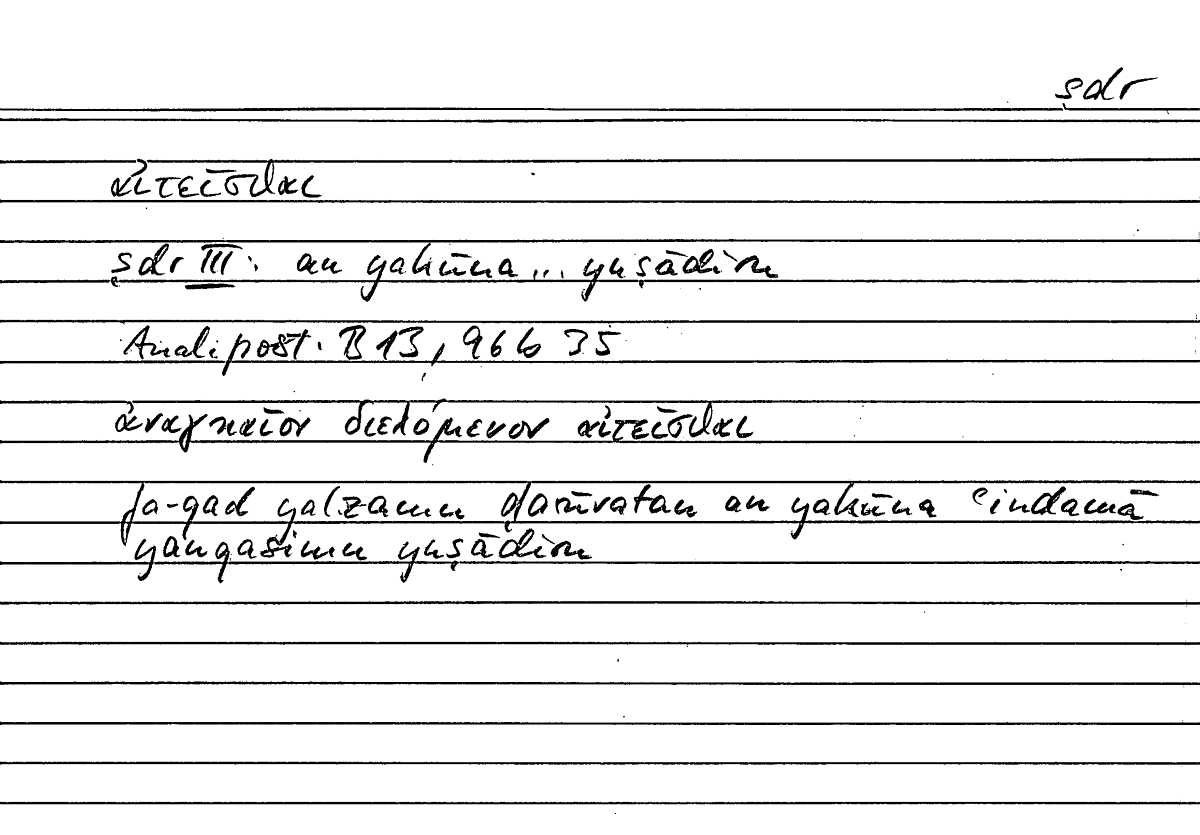 ṣdr
αἰτεῖσθαι
ṣdr III: an yakūna... yuṣādiru
Anal. post. B 13, 96 b 35
ἀναγκαῖον διελόμενον αἰτεῖσθαι
fa-qad yalzamu ḍarūratan an yakūna ʿindamā
yanqasimu yuṣādiru